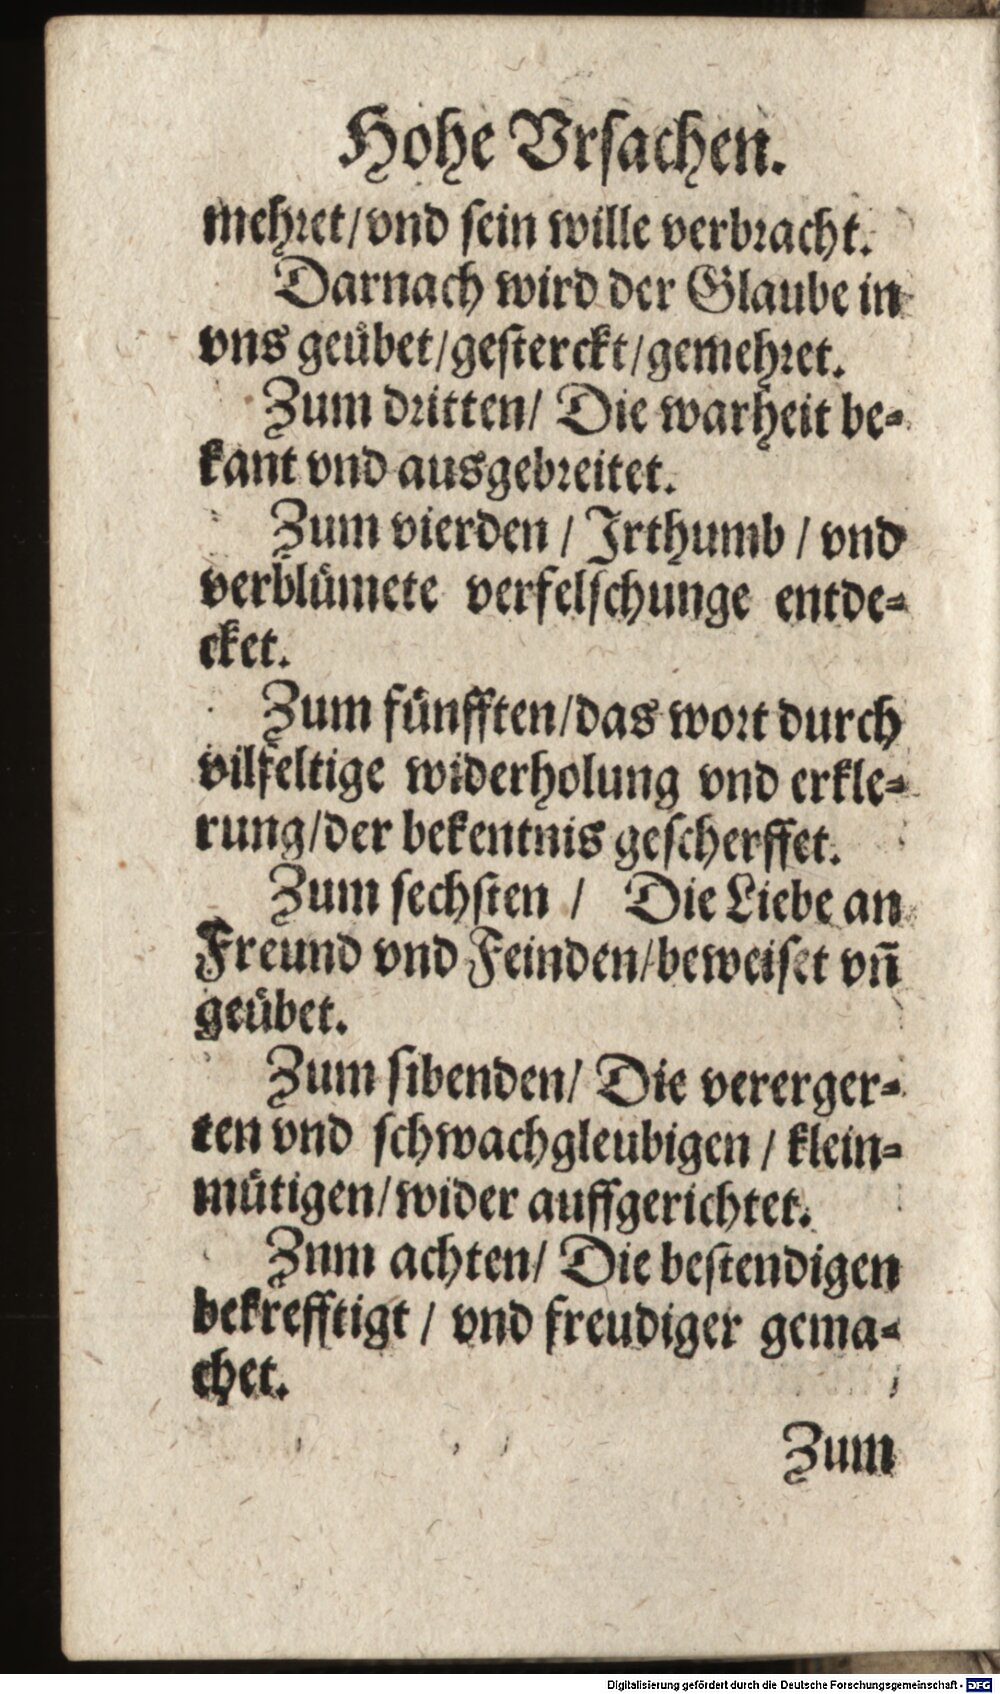 Hohe Vrſachen.
mehret/vnd ſein wille verbracht.
Darnach wird der Glaube in
vns geübet/geſterckt/gemehret.
Zum dritten/ Die warheit be-
kant vnd ausgebreitet.
Zum vierden / Irthumb / vnd
verblümete verfelſchunge entde-
cket.
Zum fünfften/das wort durch
vilfeltige widerholung vnd erkle-
rung/der bekentnis geſcherffet.
Zum ſechſten / Die Liebe an
Freund vnd Feinden/beweiſet vn̄
geübet.
Zum ſibenden/ Die vererger-
ten vnd ſchwachgleubigen / klein-
mütigen/wider auffgerichtet.
Znm achten/ Die beſtendigen
bekrefftigt / vnd freudiger gema-
chet.
Zum
Digitalisierung gefördert durch die Deutsche Forschungsgemeinschaft - DFG